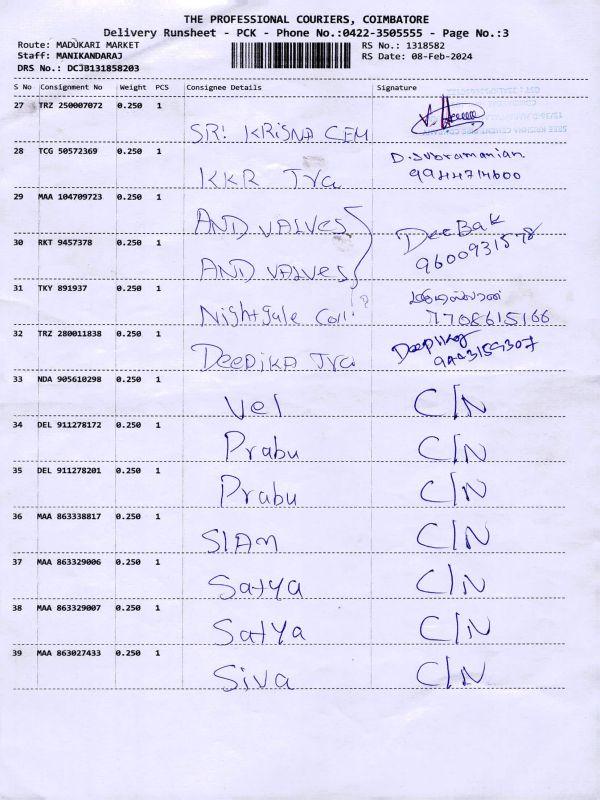 THE PROFESSIONAL COURIERS, COIMBATORE
Delivery Runsheet - PCK - Phone No.:0422-3505555 - Page No.:3
Route: MADUKARI MARKET RS No.: 1318582
Staff: MANIKANDARAJ RS Date: 08-Feb-2024
DRS No.: DCJB131858203
S No Consignment No Weight PCS Consignee Details Signature
27 TRZ 250007072 0.250 1
SRI KRISNA CEM
28 TCG 50572369 0.250 1 D. Subramanian
KKR Tra 9944714600
29 MAA 104709723 0.250 1
AND VALVES DEEBAK
30 RKT 9457378 0.250 1 9600931578
AND VALVES
31 TKY 891937 0.250 1
Nightgale Coll 7708615166
32 TRZ 280011838 0.250 1
DEEPIKA Tra
33 NDA 905610298 0.250 1
Vel C/N
34 DEL 911278172 0.250 1
Prabu C/N
35 DEL 911278201 0.250 1
Prabu C/N
36 MAA 863338817 0.250 1
SIAM C/N
37 MAA 863329006 0.250 1
Satya C/N
38 MAA 863329007 0.250 1
Satya C/N
39 MAA 863027433 0.250 1
Siva C/N